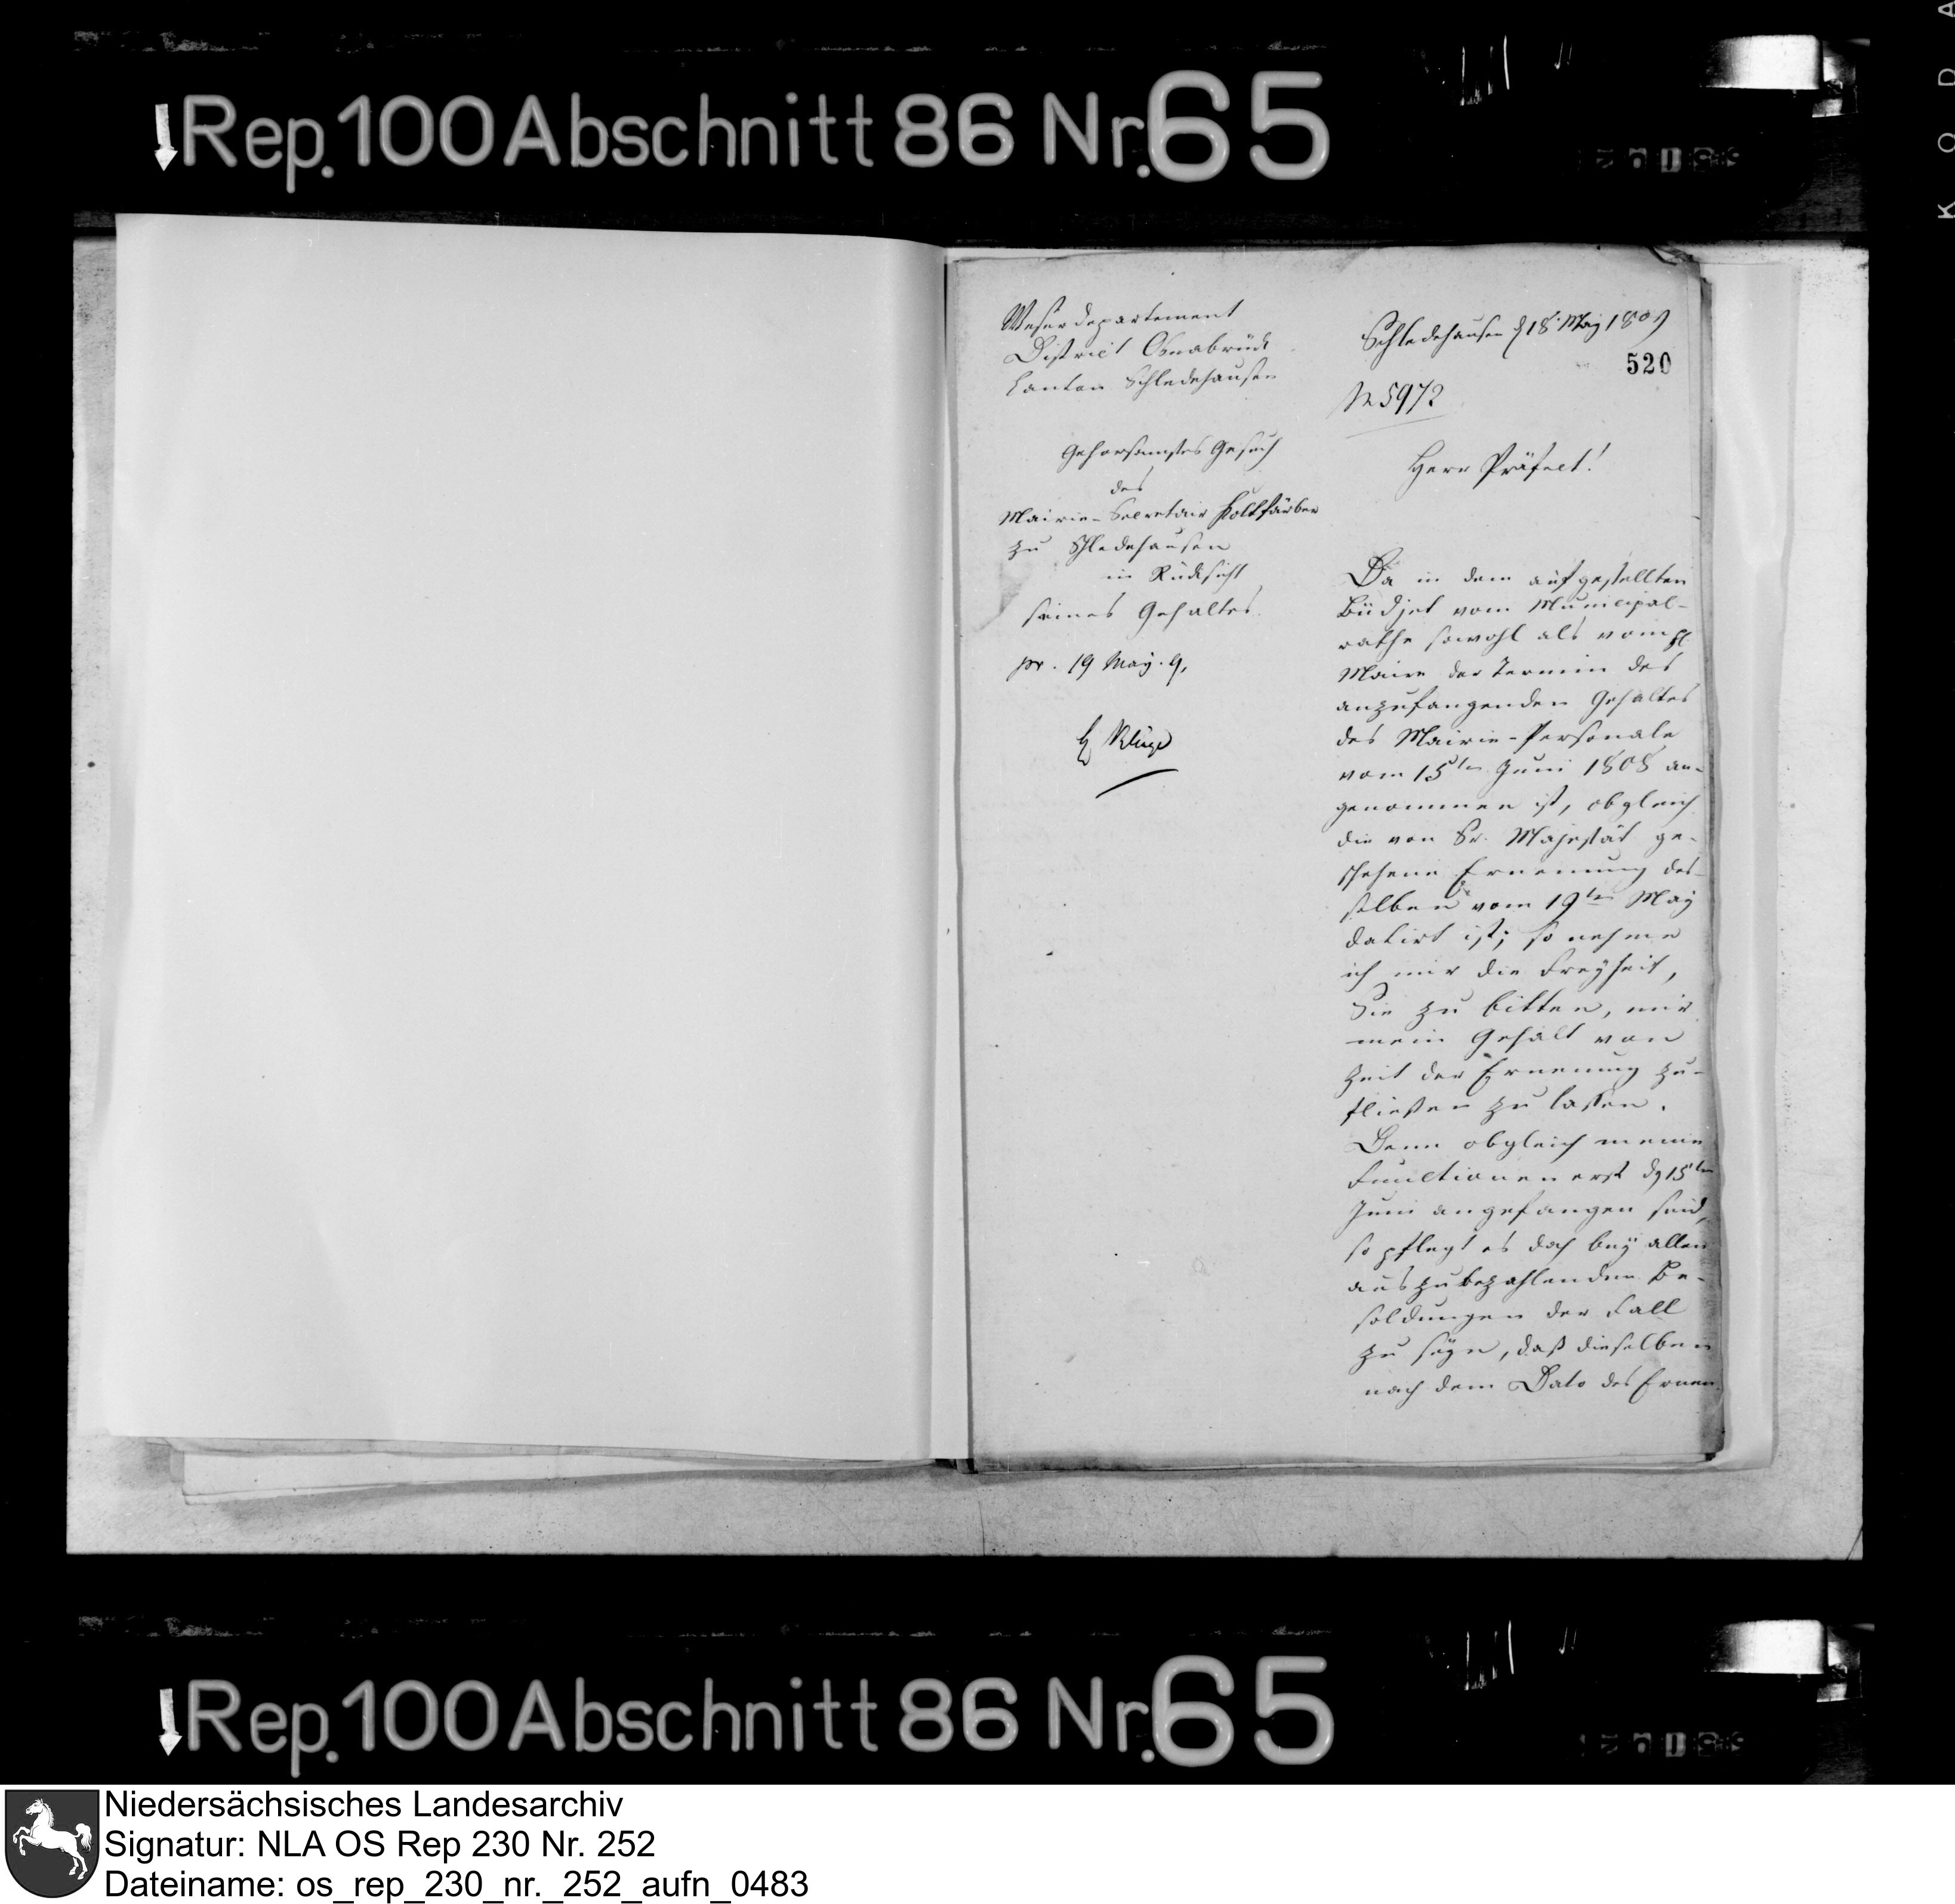 Rep. 100 Abschnitt 86 Nr. 65
KODA
Weserdepartement
District Osnabrück
Canton Schledehausen
Gehorsamstes Gesuch
des
Mairie-Secretair Holtfärber
zu Schledehausen
in Rücksicht
seines Gehaltes.
pr. 19 May. 9.
Kluge
Schledehausen d 18. May 1809
520
N 5972
Herr Präfect!
Da in dem aufgestellten
Büdjet vom Municipal-
rathe sowohl als vom H.
Maire der Termin des
anzufangenden Gehaltes
des Mairie-Personale
vom 15ten Juni 1808 an-
genommen ist, obgleich
die von Sr. Majestät ge-
schehene Ernennung des-
selben vom 19ten May
datirt ist; so nehme
ich mir die Freyheit,
Sie zu bitten, mir
mein Gehalt von
Zeit der Ernennung zu-
fließen zu lassen.
Denn obgleich meine
Functionen erst d 15ten
Juni angefangen sind,
so pflegt es doch bey allen
auszubezahlenden Be-
soldungen der Fall
zu seyn, daß dieselben
nach dem Dato des Ernen
Rep. 100 Abschnitt 86 Nr. 65
Niedersächsisches Landesarchiv
Signatur: NLA OS Rep 230 Nr. 252
Dateiname: os_rep_230_nr._252_aufn_0483